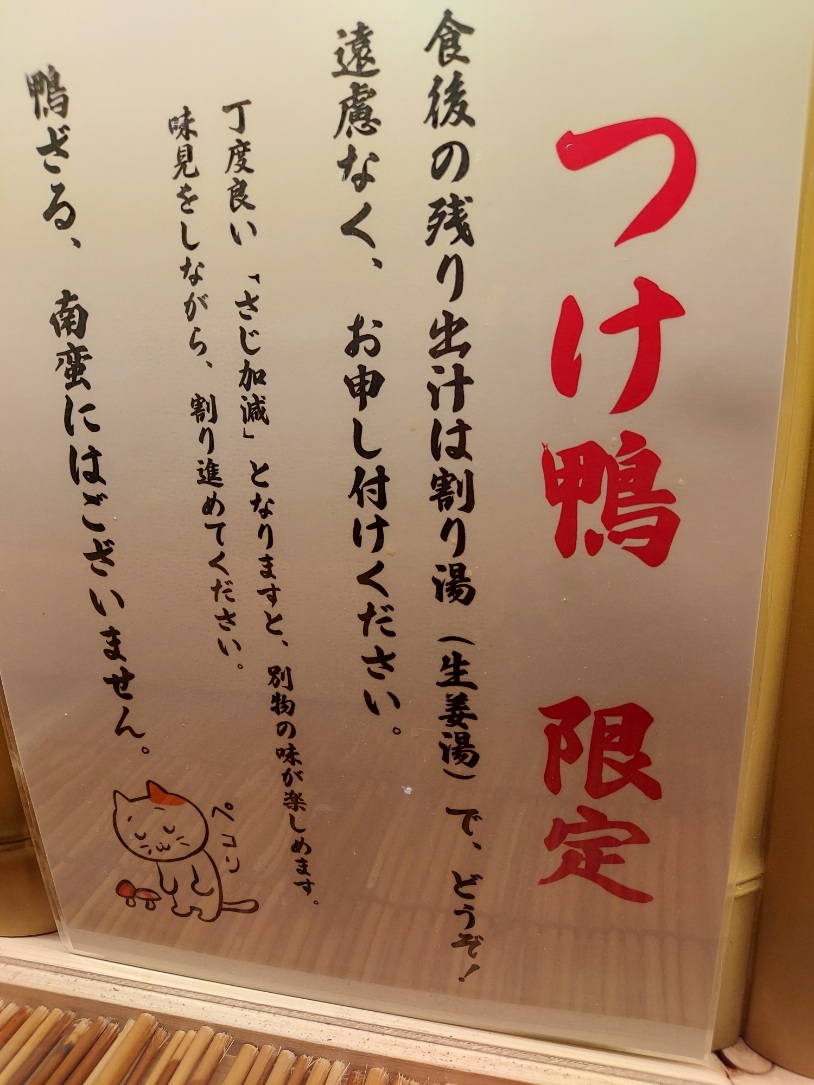 つけ鴨 限定
食後の残り出汁は割り湯（生姜湯）で、どうぞ！
遠慮なく、お申し付けください。
丁度良い「さじ加減」となりますと、別物の味が楽しめます。
味見をしながら、割り進めてください。
鴨ざる、南蛮にはございません。
ペコリ